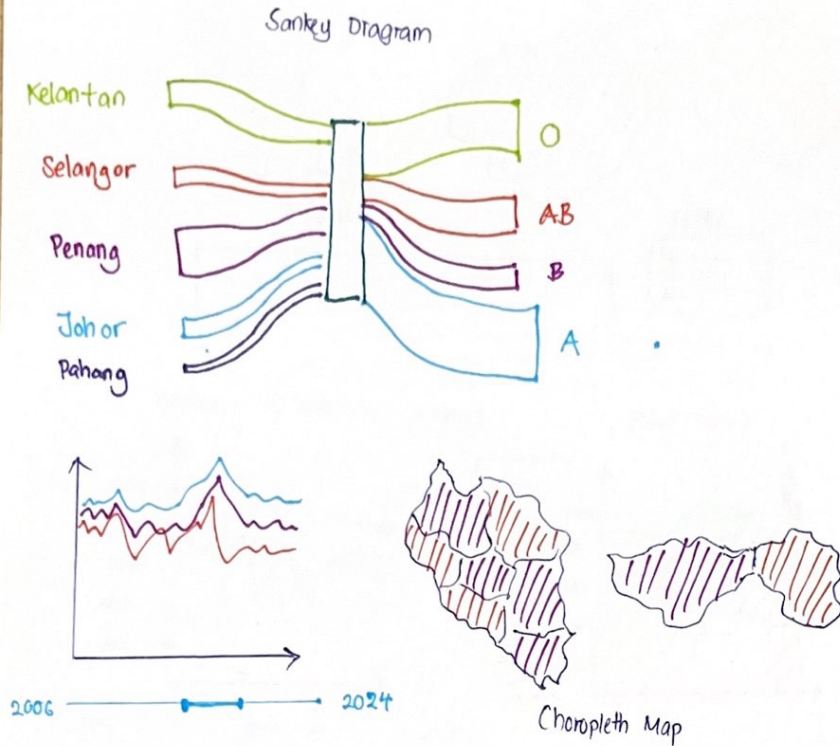 Sankey Diagram
Kelantan
O
Selangor
AB
Penang
B
Johor
A
Pahang
2006
2024
Choropleth Map